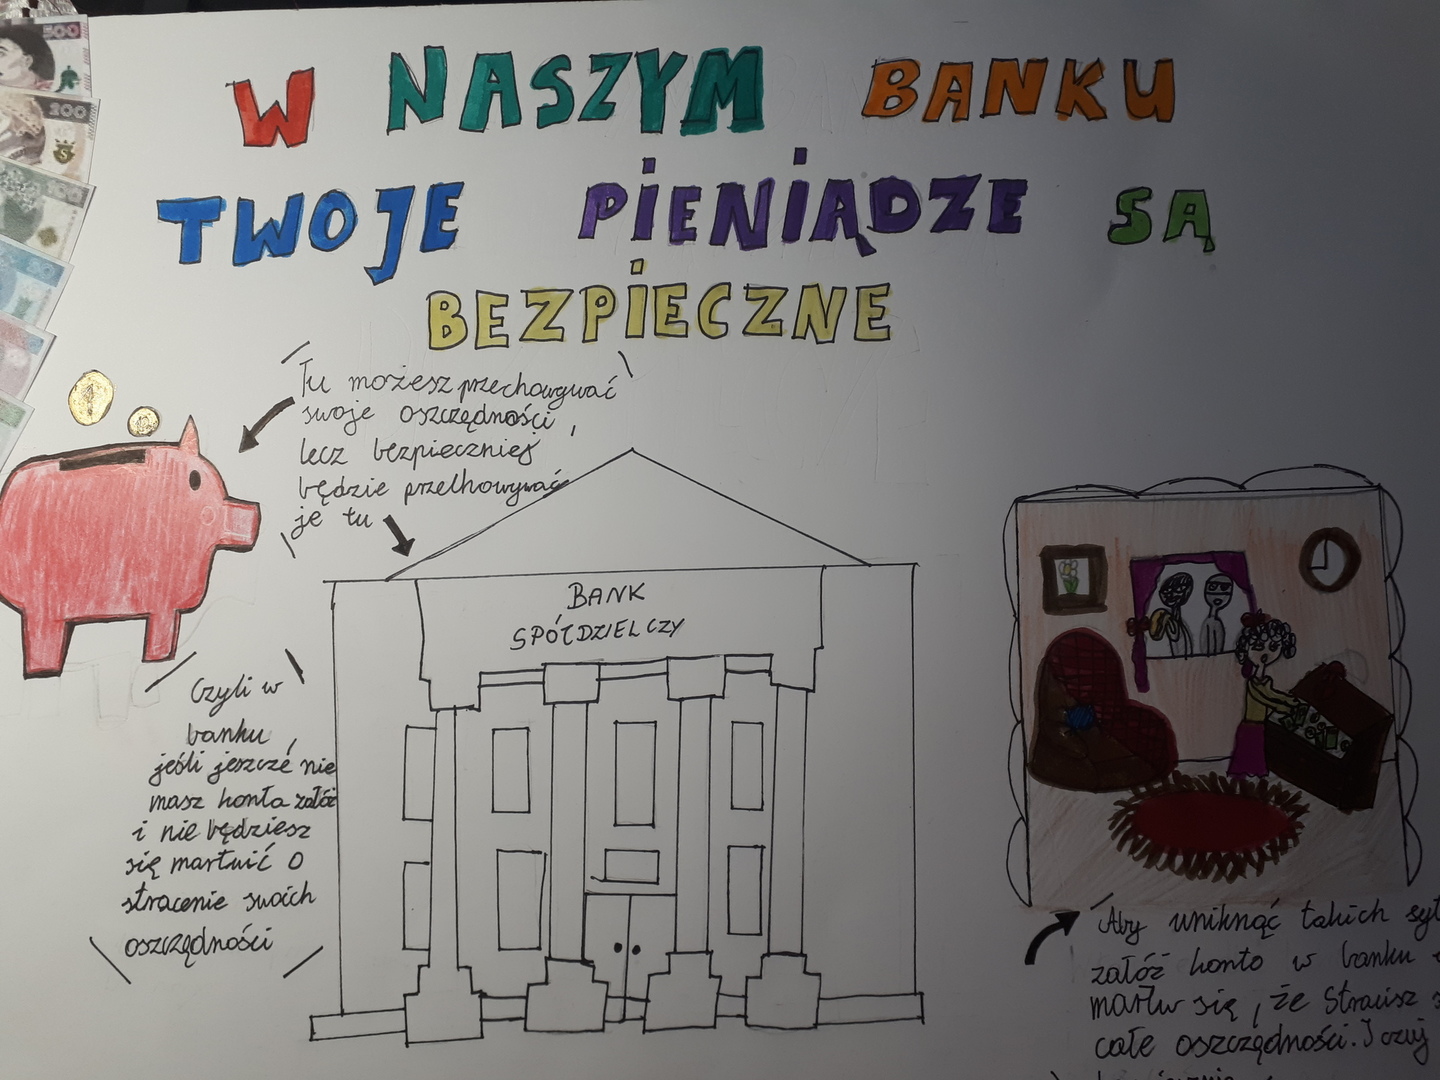 500
200
100
W NASZYM BANKU
TWOJE PIENIĄDZE SĄ
BEZPIECZNE
Tu możesz przechowywać
swoje oszczędności,
lecz bezpieczniej
będzie przelhowywać
je tu
BANK
SPÓŁDZIELCZY
Czyli w
banku,
jeśli jeszcze nie
masz konta załóż
i nie będziesz
się martwić o
stracenie swoich
oszczędności
Aby uniknąć takich
załóż konto w banku
martw się, że stracisz
całe oszczędności. I czuj